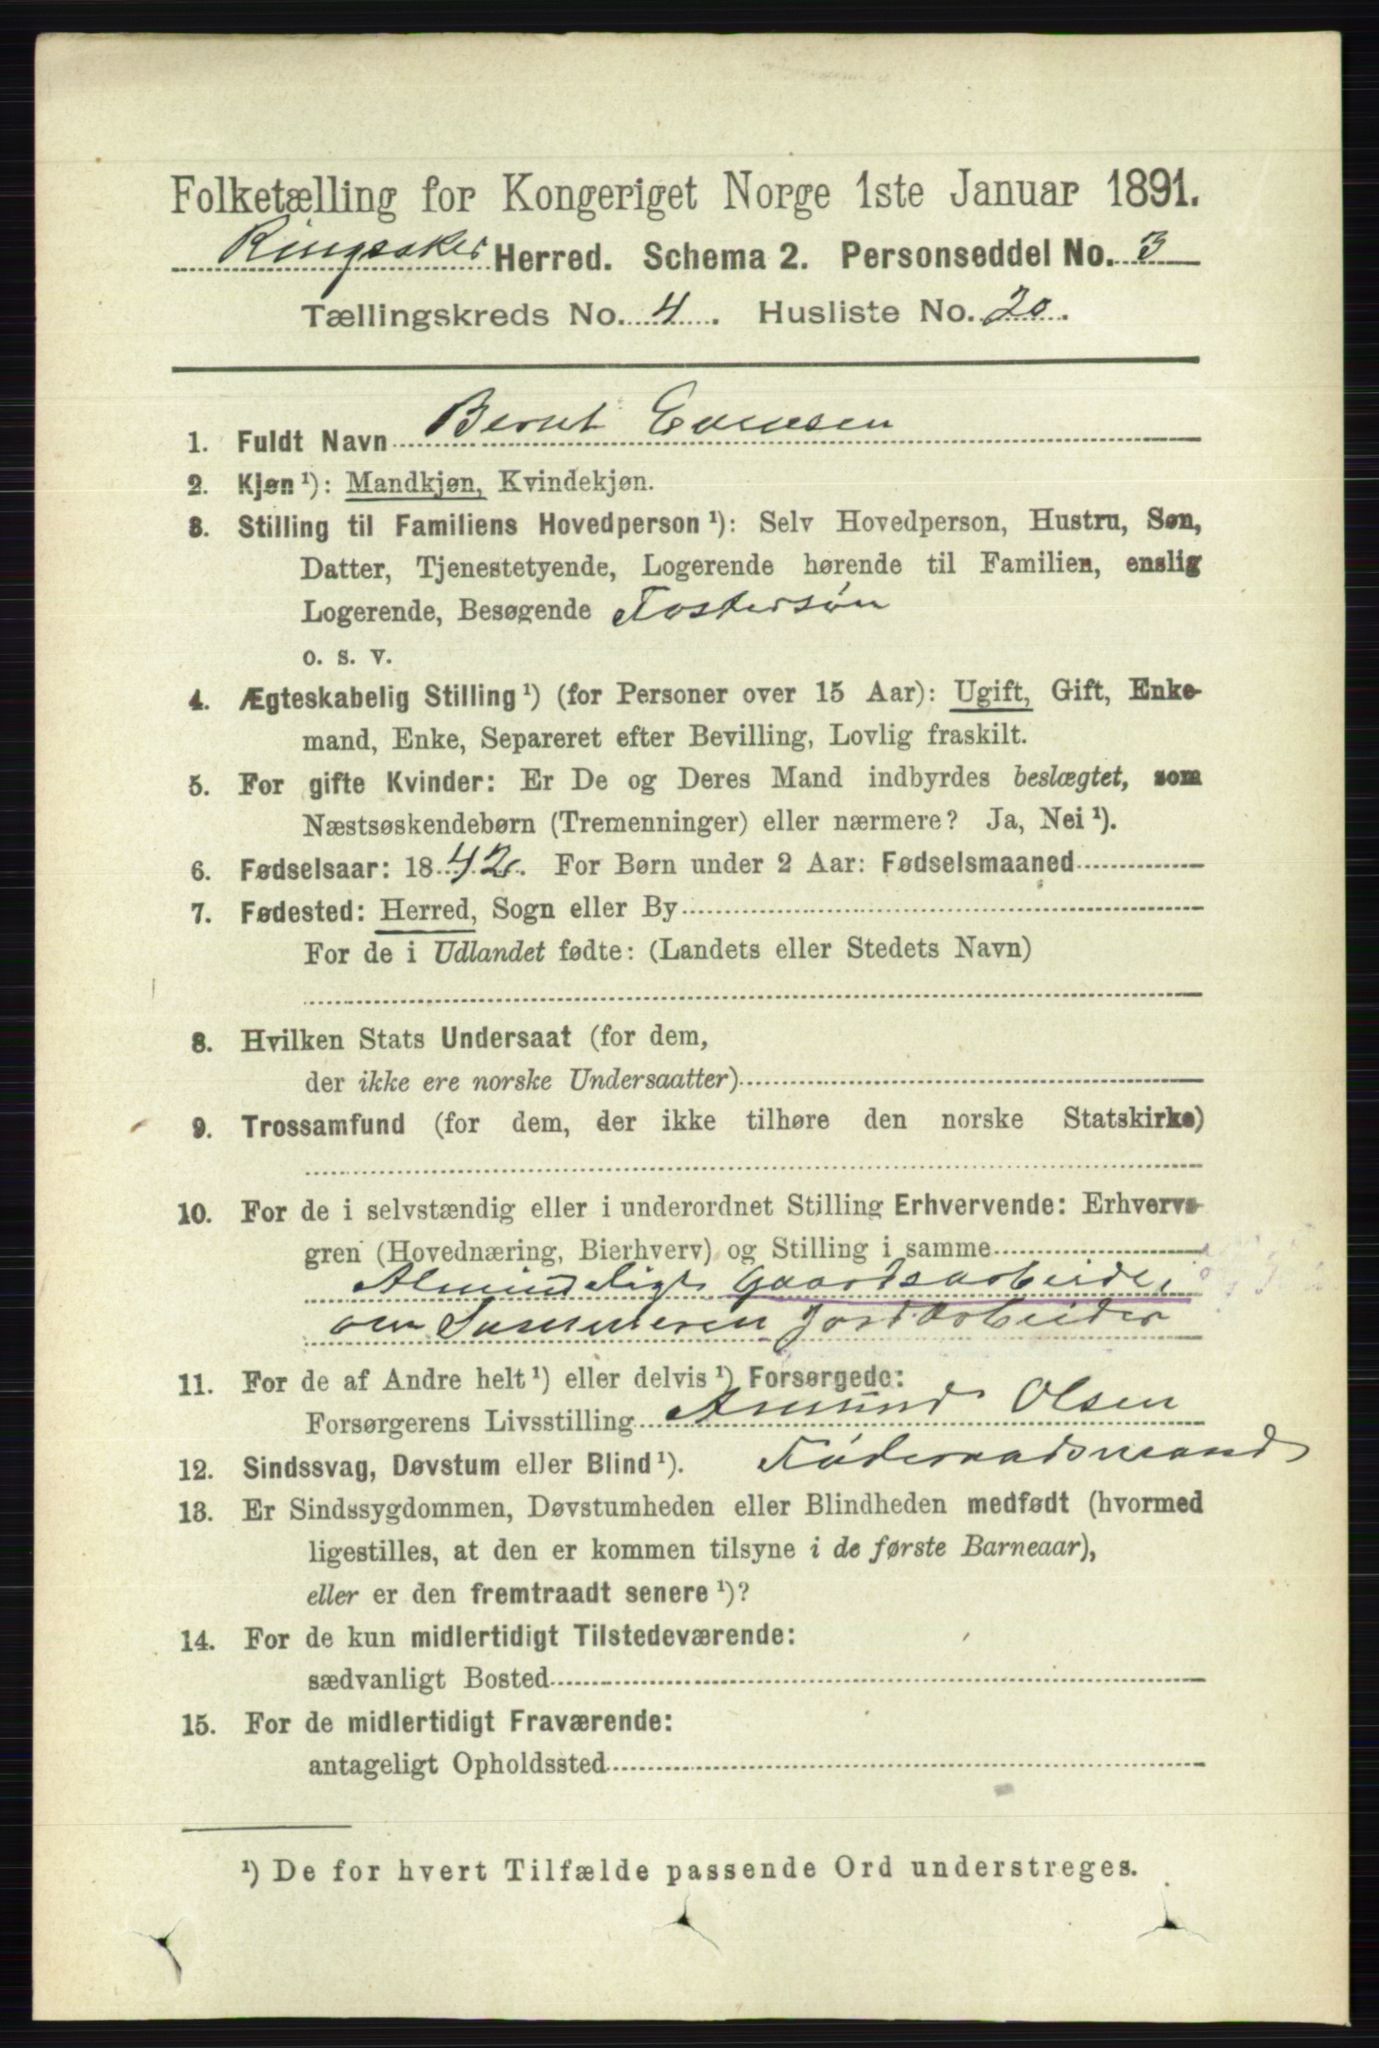 Folketælling for Kongeriget Norge 1ste Januar 1891.
Ringsaker Herred. Schema 2. Personseddel No. 3
Tællingskreds No. 4. Husliste No. 20.
1. Fuldt Navn Bernt Evensen
2. Kjøn ¹): Mandkjøn, Kvindekjøn.
3. Stilling til Familiens Hovedperson ¹): Selv Hovedperson, Hustru, Søn,
Datter, Tjenestetyende, Logerende hørende til Familien, enslig
Logerende, Besøgende Fostersøn
o. s. v.
4. Ægteskabelig Stilling ¹) (for Personer over 15 Aar): Ugift, Gift, Enke-
mand, Enke, Separeret efter Bevilling, Lovlig fraskilt.
5. For gifte Kvinder: Er De og Deres Mand indbyrdes beslægtet, som
Næstsøskendebørn (Tremenninger) eller nærmere? Ja, Nei ¹).
6. Fødselsaar: 1842. For Børn under 2 Aar: Fødselsmaaned
7. Fødested: Herred, Sogn eller By
For de i Udlandet fødte: (Landets eller Stedets Navn)
8. Hvilken Stats Undersaat (for dem,
der ikke ere norske Undersaatter)
9. Trossamfund (for dem, der ikke tilhøre den norske Statskirke)
10. For de i selvstændig eller i underordnet Stilling Erhvervende: Erhvervs-
gren (Hovednæring, Bierhverv) og Stilling i samme
Almindeligt Gaardsarbeide,
om Sommeren Jordarbeider
11. For de af Andre helt ¹) eller delvis ¹) Forsørgede:
Forsørgerens Livsstilling Amund Olsen
12. Sindssvag, Døvstum eller Blind ¹). Føderaadsmand
13. Er Sindssygdommen, Døvstumheden eller Blindheden medfødt (hvormed
ligestilles, at den er kommen tilsyne i de første Barneaar),
eller er den fremtraadt senere ¹)?
14. For de kun midlertidigt Tilstedeværende:
sædvanligt Bosted
15. For de midlertidigt Fraværende:
antageligt Opholdssted
¹) De for hvert Tilfælde passende Ord understreges.